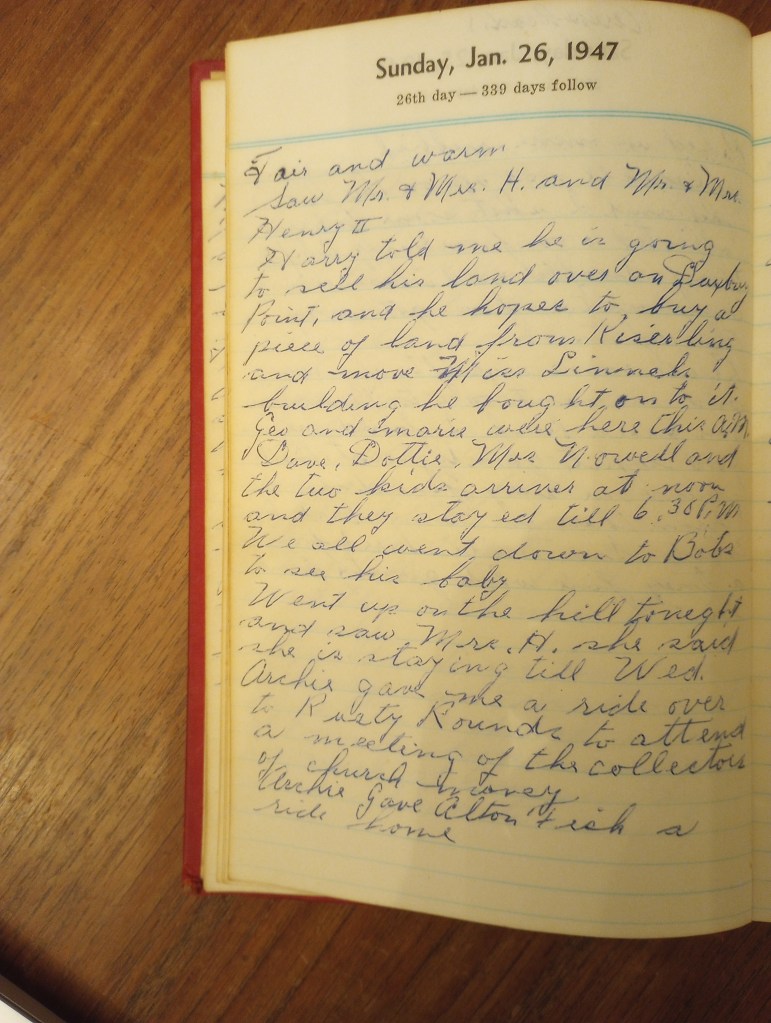 Sunday, Jan. 26, 1947
26th day — 339 days follow
Fair and warm
Saw Mr. & Mrs. H. and Mr. & Mrs.
Henry II
Harry told me he is going
to sell his land over on Duxbury
Point, and he hopes to buy a
piece of land from Kiserling
and move Miss Linnels
building he bought on to it.
Geo and marie were here this A.M.
Dave, Dottie, Mrs Nowell and
the two kids arriver at noon
and they stayed till 6.30 P.M
We all went down to Bobs
to see his baby
Went up on the hill tonight
and saw Mrs. H. she said
she is staying till Wed.
Archie gave me a ride over
to Rusty Rounds to attend
a meeting of the collectors
of church money
Archie Gave Alton Fish a
ride home